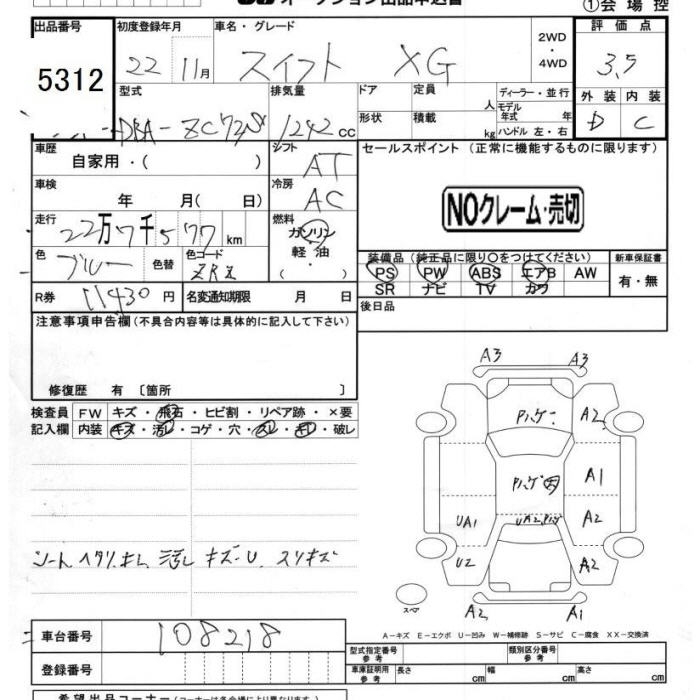 オークション出品申込書
①会場控
出品番号 初度登録年月 車名・グレード 2WD・4WD 評価点
5312 22 11月 スイフト XG 3.5
型式 排気量 ドア 定員 人 ディーラー・並行 外装 内装
DBA-ZC72S 1242 cc 形状 積載 kg モデル年式 年 D C
ハンドル 左・右
車歴 自家用・( ) シフト AT セールスポイント (正常に機能するものに限ります)
車検 年 月( 日) 冷房 AC
NOクレーム・売切
走行 22万7千577km 燃料 ガソリン 軽油 ・( )
色 ブルー 色替 色コード 装備品 (純正品に限り○をつけてください) 新車保証書
PS PW ABS エアB AW 有・無
SR ナビ TV カワ
R券 11430円 名変通知期限 月 日 後日品
注意事項申告欄 (不具合内容等は具体的に記入して下さい)
修復歴 有 〔箇所 〕
検査員 FW キズ・飛石・ヒビ割・リペア跡・×要
記入欄 内装 キズ・汚レ・コゲ・穴・スレ・キレ・破レ
A3 A3
Pハゲ A2
A1
UA1 A2
U2 A2
スペア
A2 A1
シートヘタリ.キレ 汚レ キズ・U スリキズ
A-キズ E-エクボ U-凹み W-補修跡 S-サビ C-腐食 XX-交換済
車台番号 108218
型式指定番号 参考 類別区分番号 参考
登録番号 車庫証明用 参考 長さ cm 幅 cm 高さ cm
希望出品コーナー (コーナーは各会場により異なります)